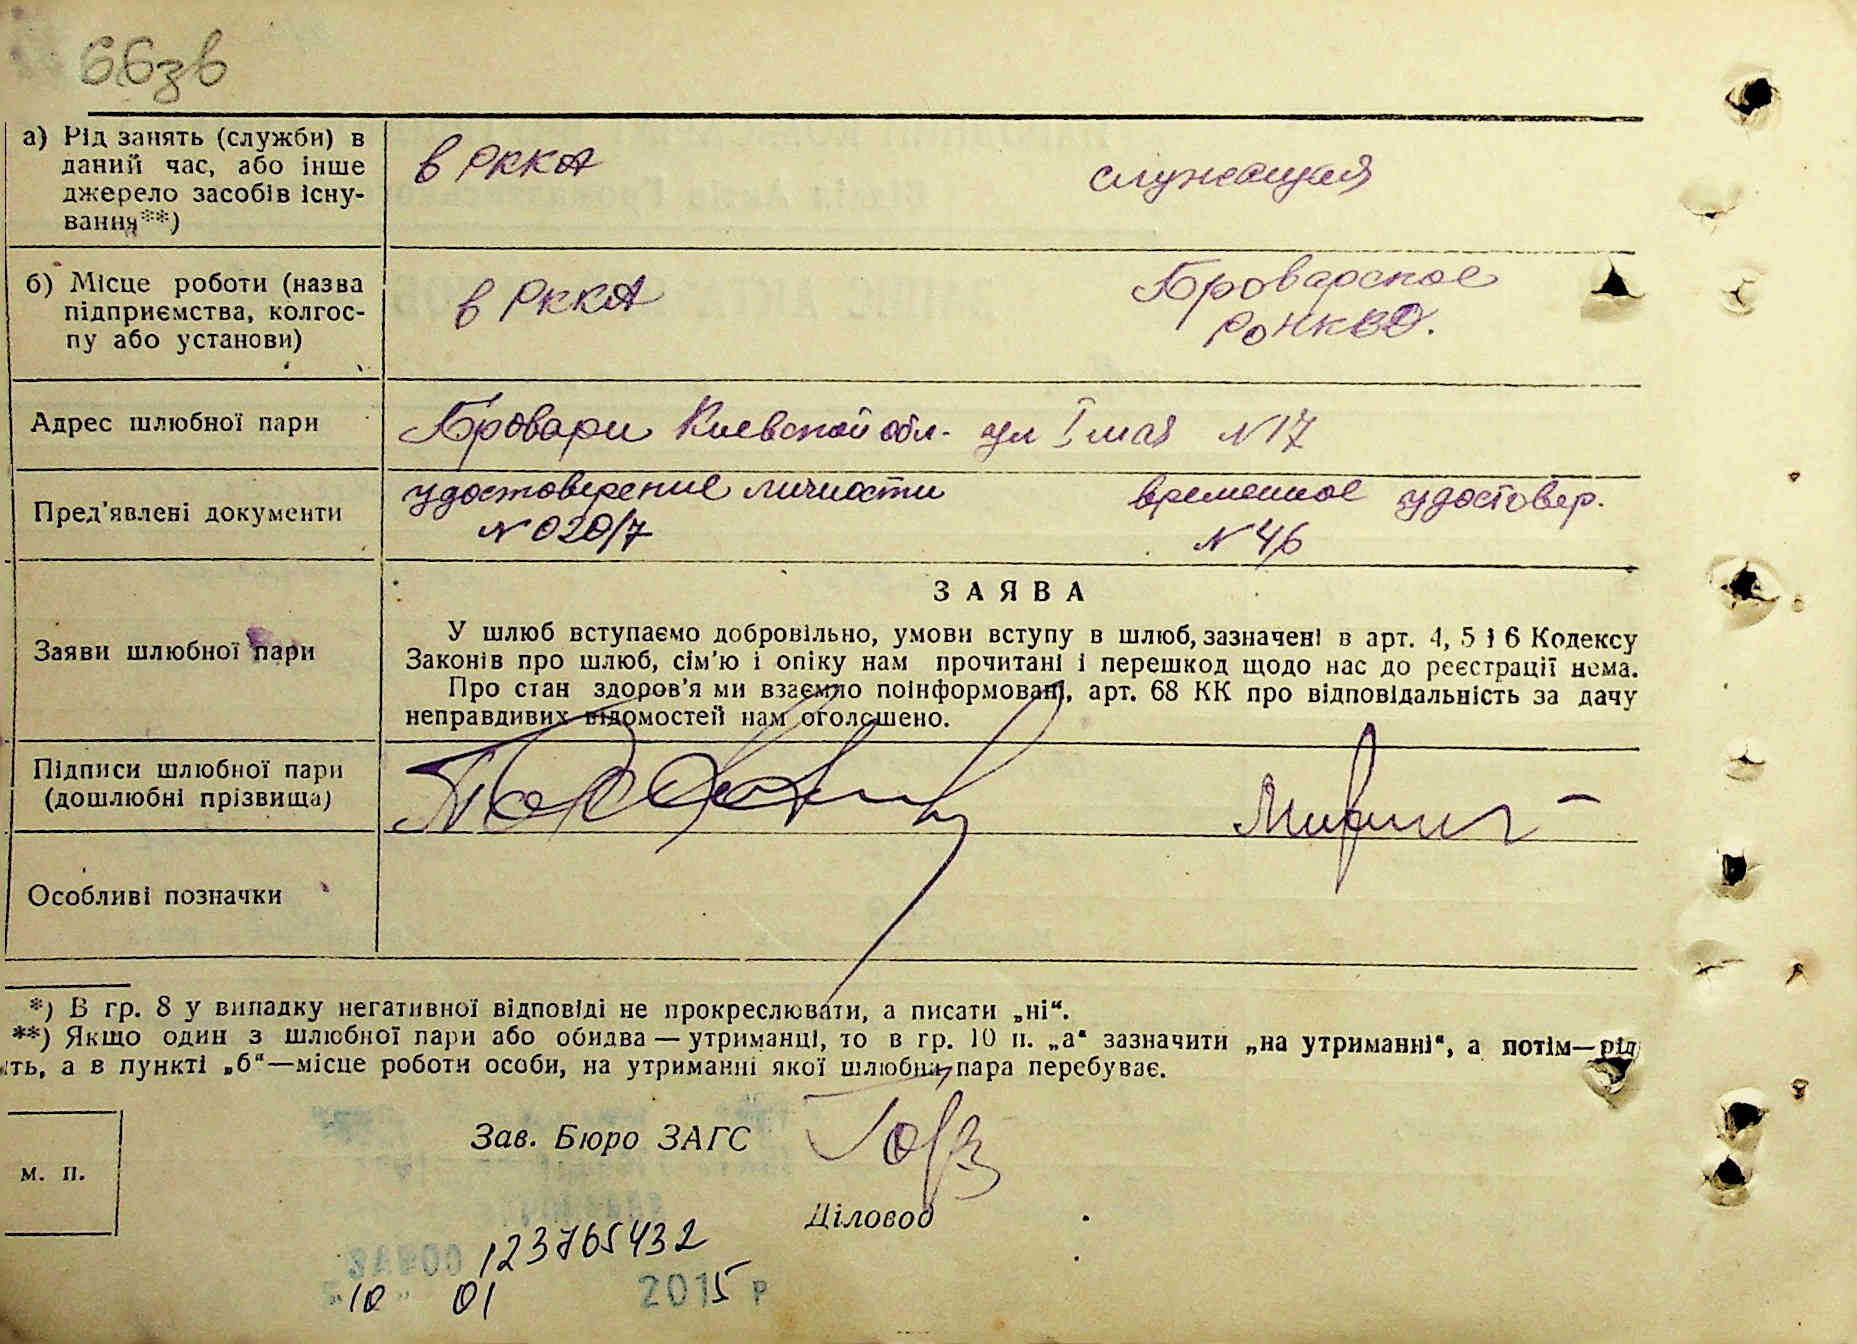 66зв
а) Рід занять (служби) в
даний час, або інше
джерело засобів існу-
вання**)
в РККА
служащая
б) Місце роботи (назва
підприємства, колгос-
пу або установи)
в РККА
Броварское
РОНКВД.
Адрес шлюбної пари
Бровари Киевской обл. ул I мая N 17
Пред'явлені документи
удостоверение личности
N 020/7
временное удостовер.
N 46
Заяви шлюбної пари
ЗАЯВА
У шлюб вступаємо добровільно, умови вступу в шлюб, зазначені в арт. 4, 5 і 6 Кодексу
Законів про шлюб, сім'ю і опіку нам прочитані і перешкод щодо нас до реєстрації нема.
Про стан здоров'я ми взаємно поінформовані, арт. 68 КК про відповідальність за дачу
неправдивих відомостей нам оголошено.
Підписи шлюбної пари
(дошлюбні прізвища)
Особливі позначки
*) В гр. 8 у випадку негативної відповіді не прокреслювати, а писати „ні“.
**) Якщо один з шлюбної пари або обидва — утриманці, то в гр. 10 п. „а“ зазначити „на утриманні“, а потім—рід
ть, а в пункті „б“—місце роботи особи, на утриманні якої шлюбна пара перебуває.
м. п.
Зав. Бюро ЗАГС
Діловод
123765432
10 01 2015 р